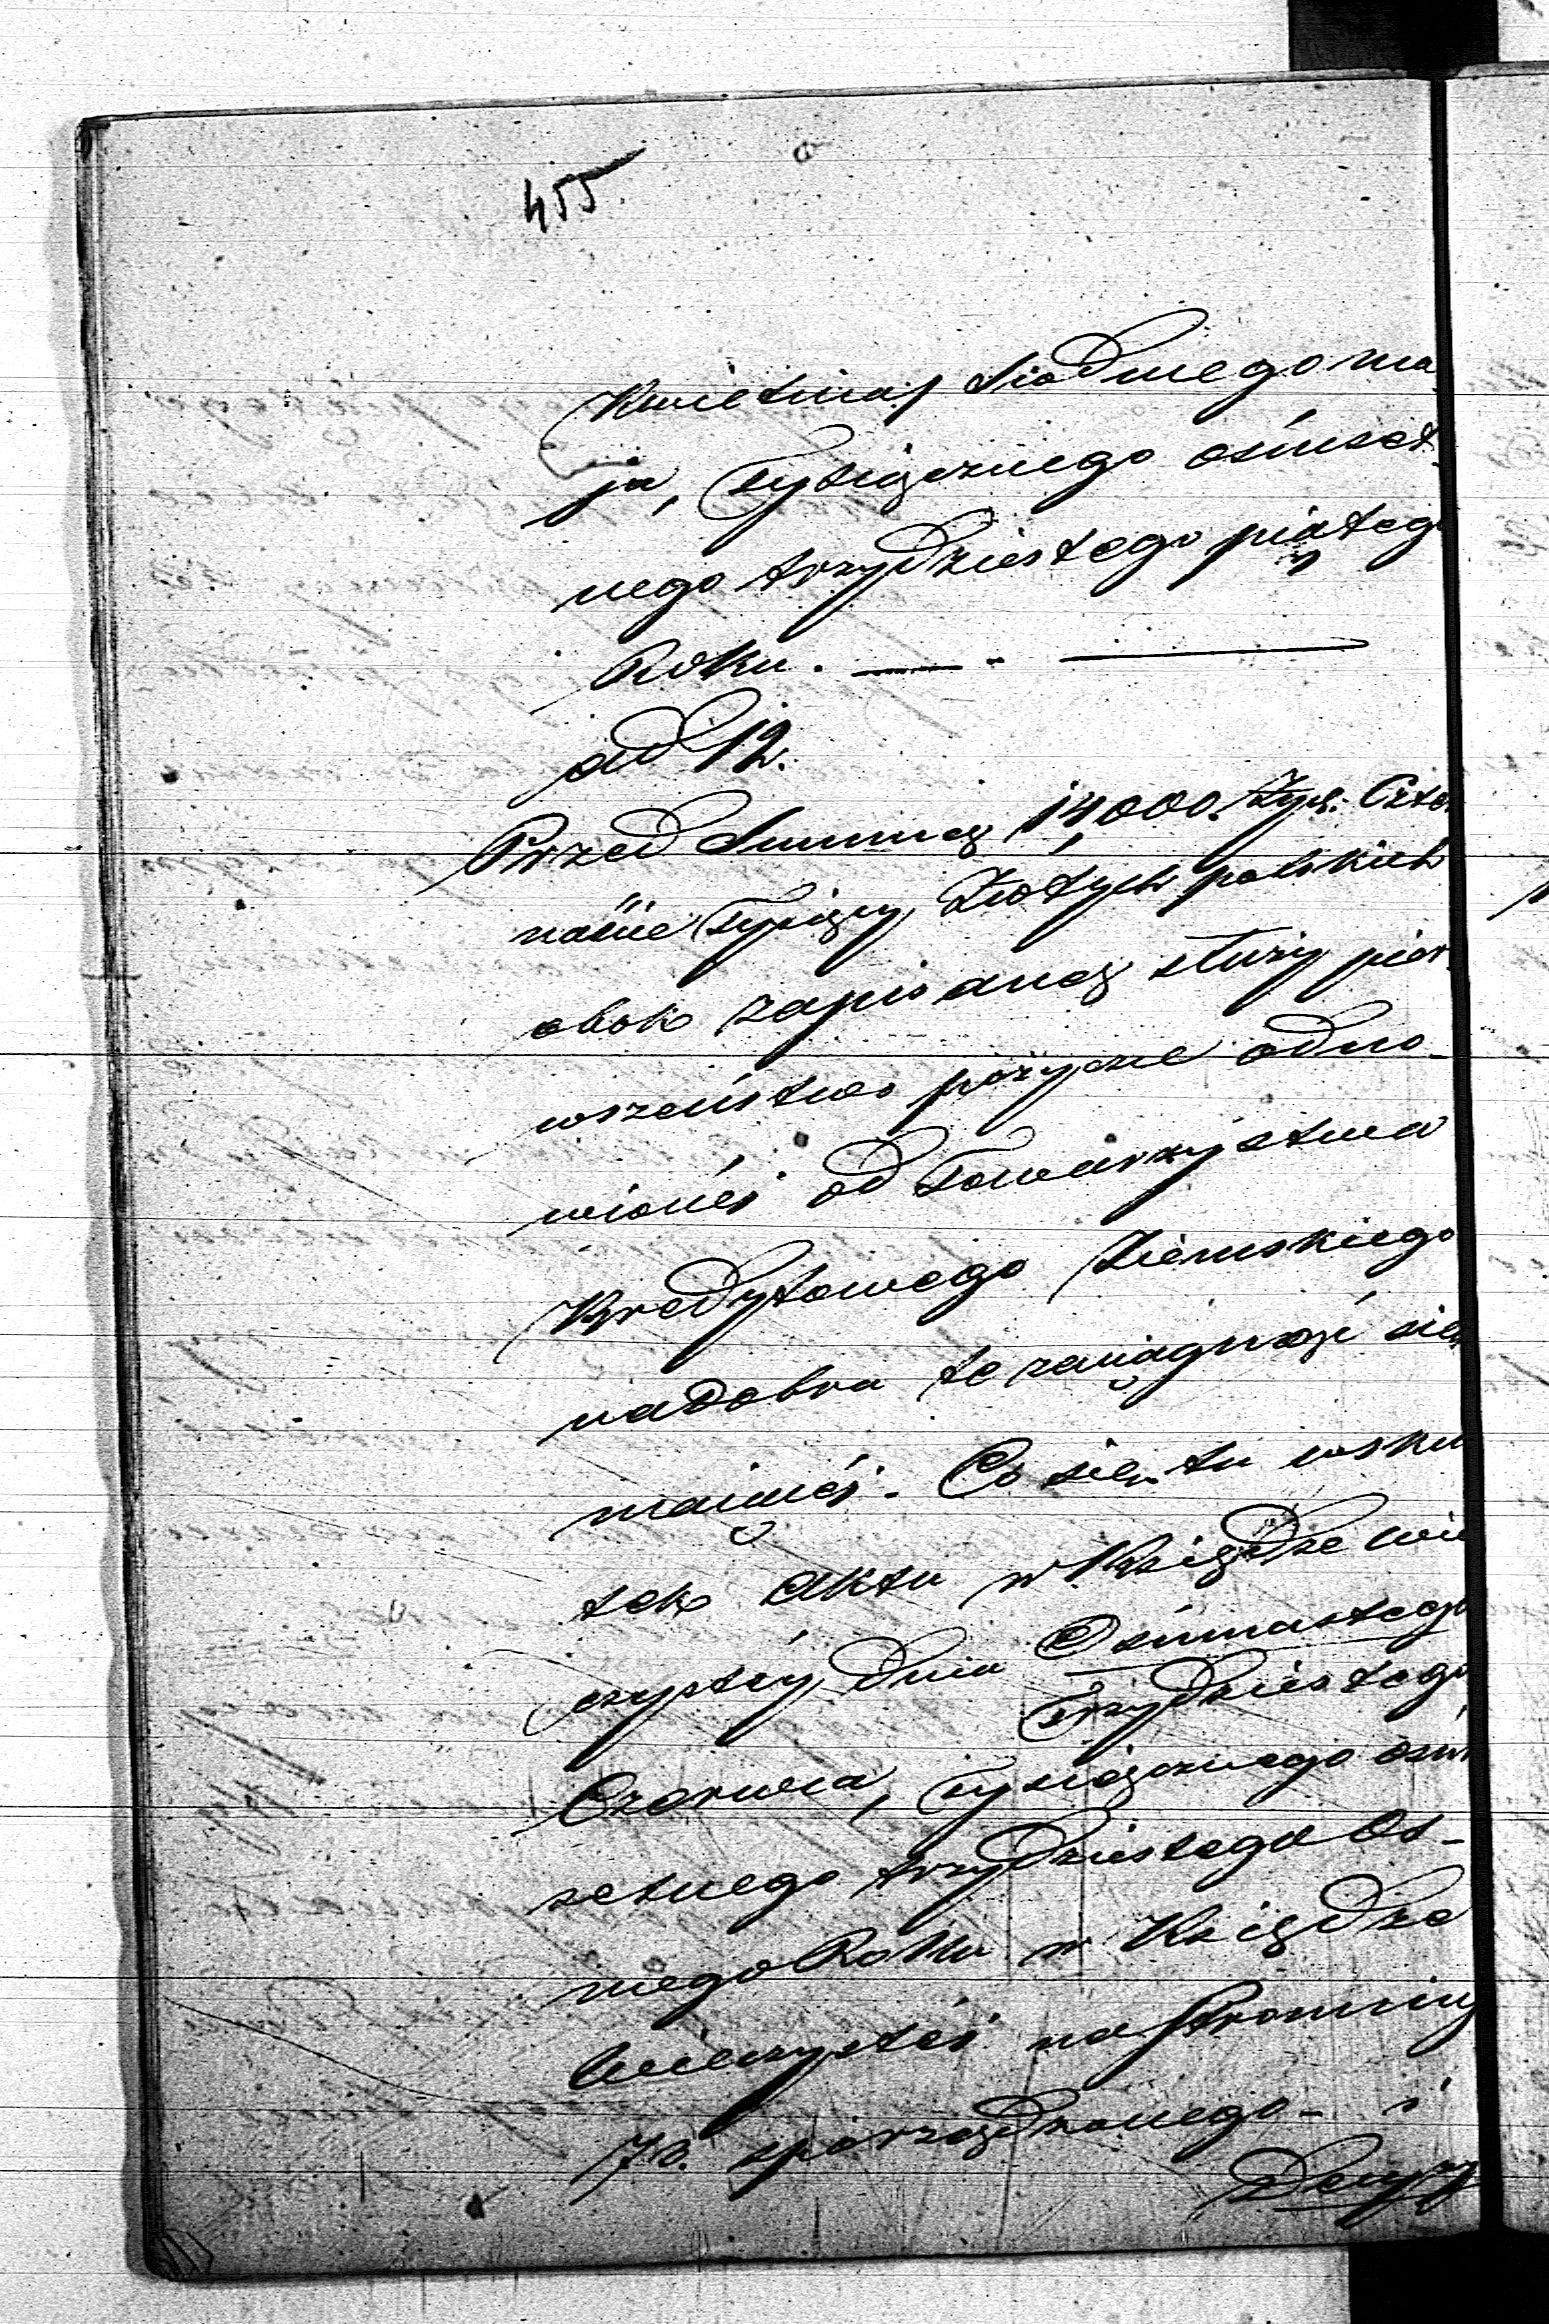 455.
Kwietnia/ siodmego ma
ja, Tysiącznego ośmset
nego trzydziestego piąteg
Roku. — - —
ad 12.
Przed Summą 14,000. Złp. Czter
naście Tysięcy Złotych polskich
obok zapisaną służy pier
wszeństwo pożyczce odno-
wionéj od Towarzystwa
Kredytowego Ziemskiego
na dobra te zaciągnąć się
maiącéj. Co się tu wsku
tek Aktu w Księdze wie
czystéy dnia Osimnastego
Trzydziestego
Czerwca, Tysiącznego ośm
setnego trzydziestego Os-
mego Roku w Księdze
Wieczystéj na stronnicy
73. sporządzonego - i
Decyz